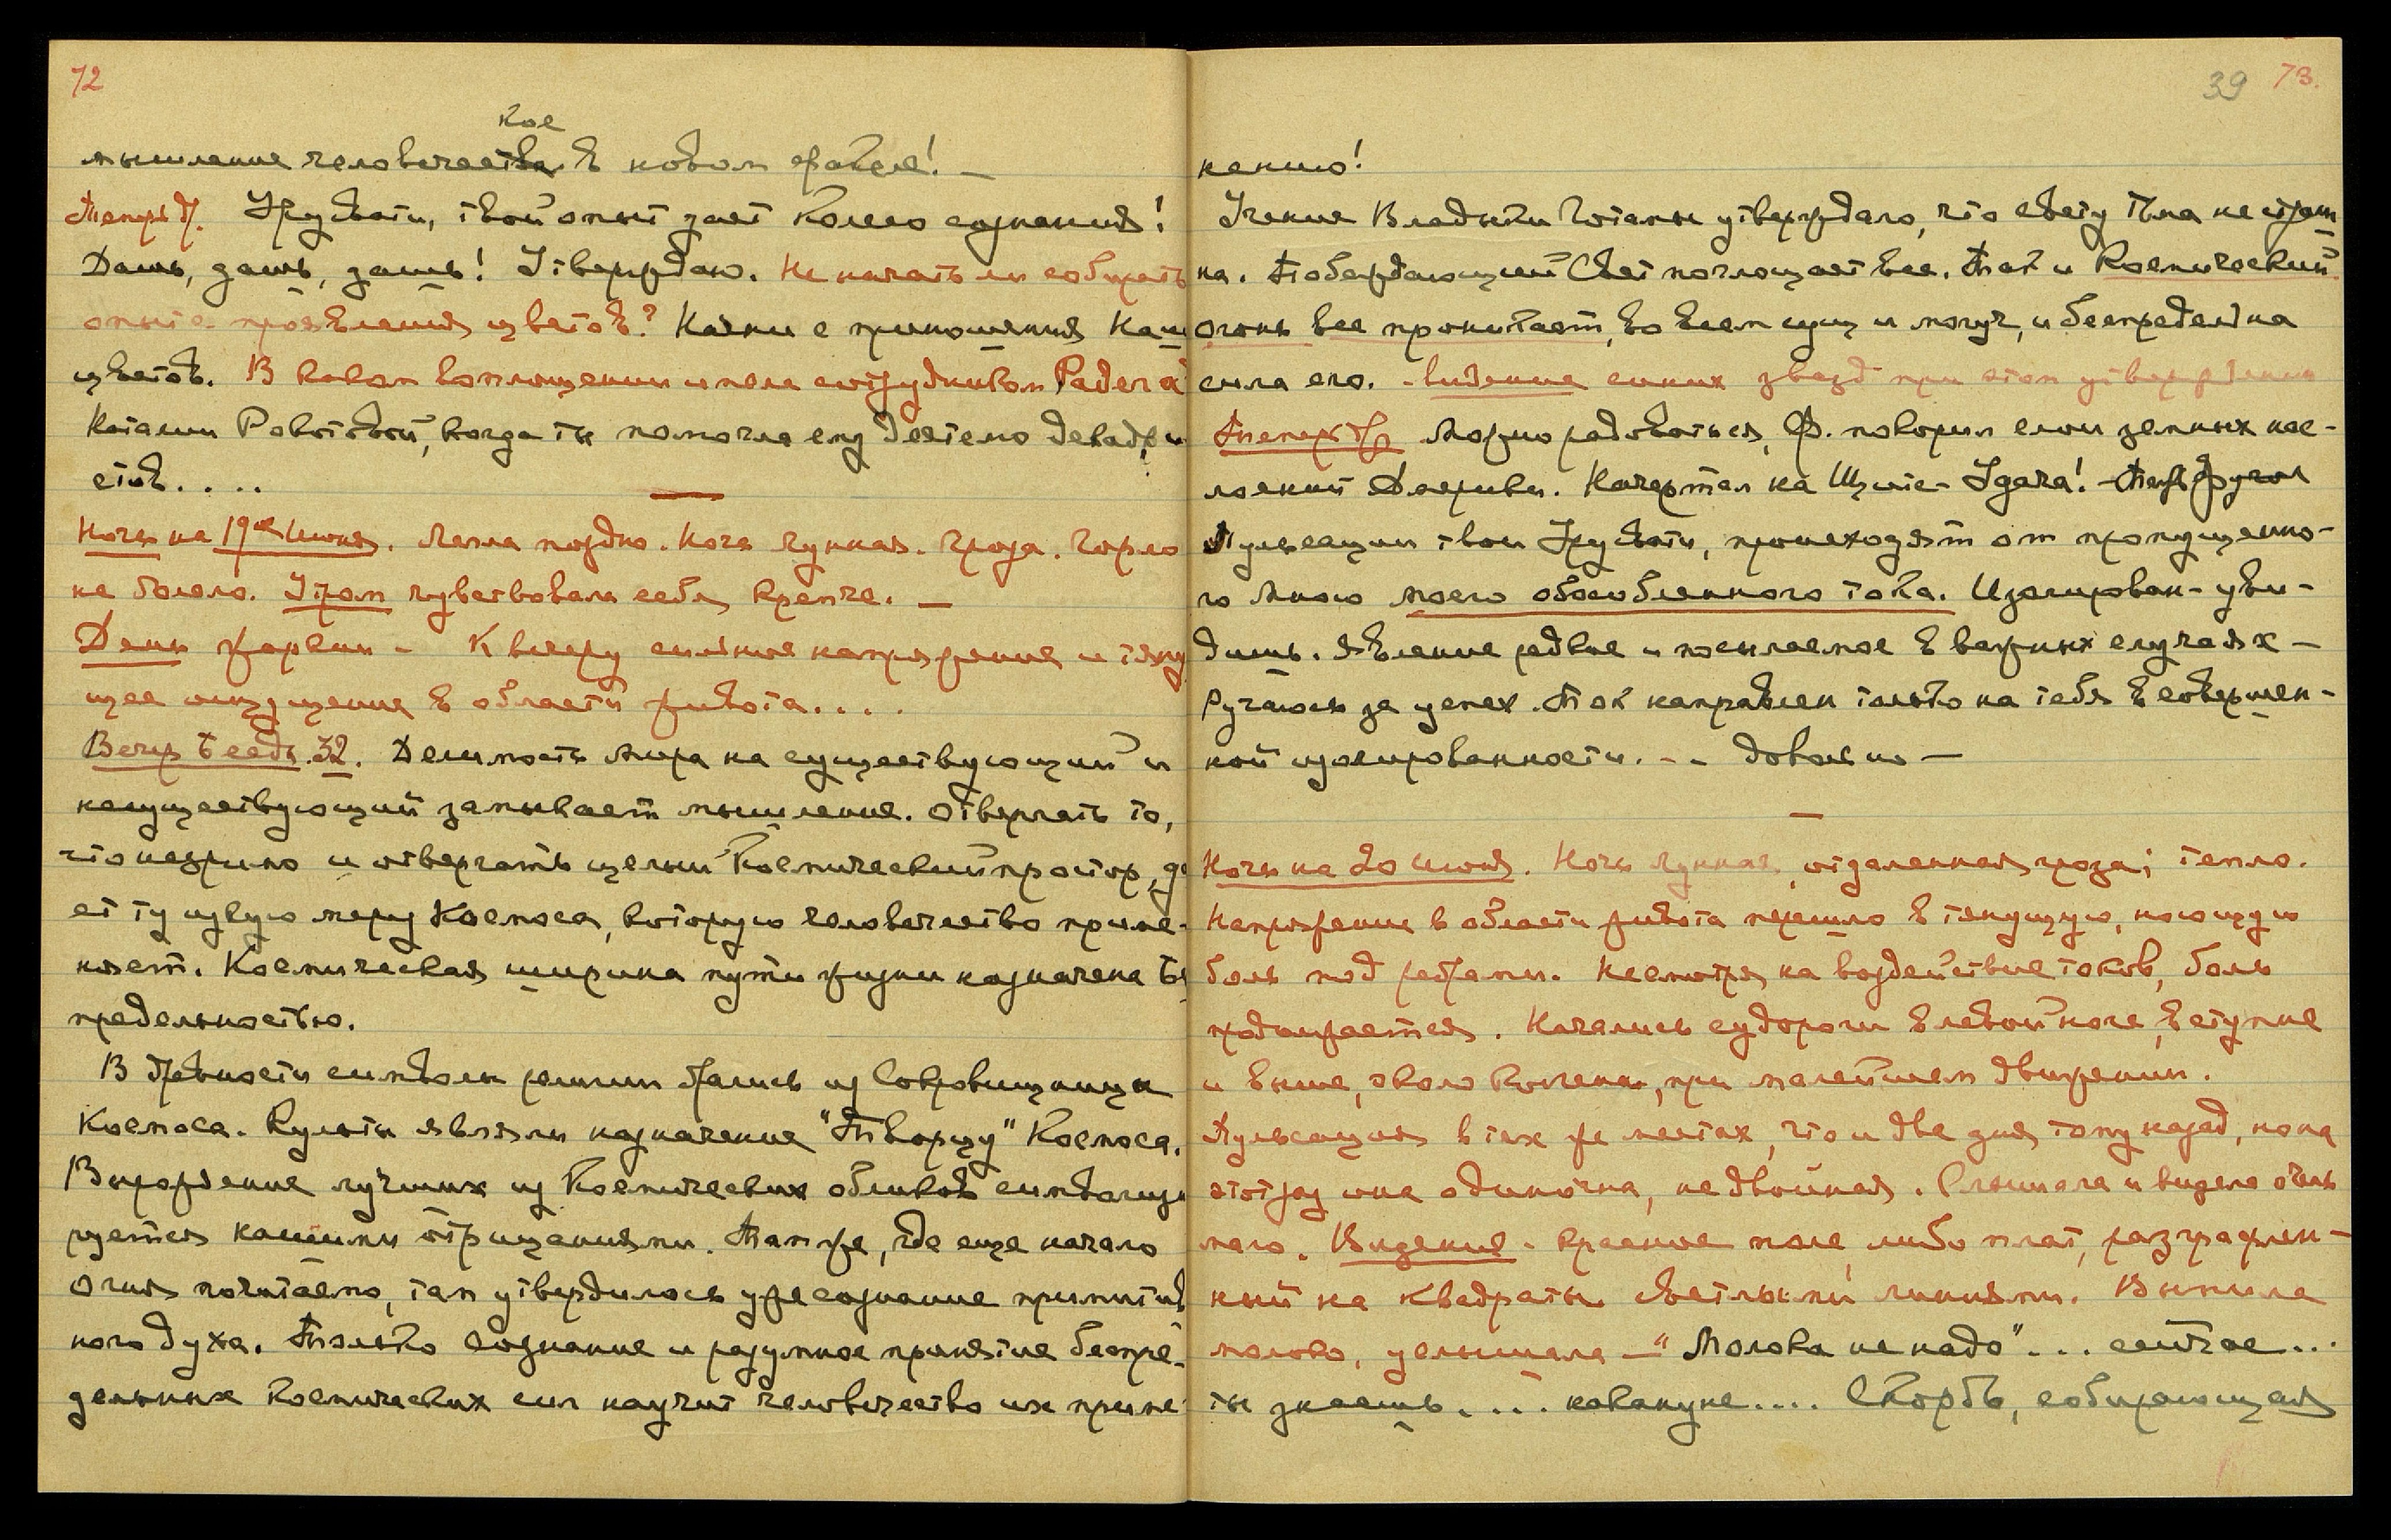 72
кое
мышление человечества в новом факеле! —
Теперь др. Урусвати, твой опыт дает колесо сознания!
Дашь, дашь, дашь! Утверждаю. Не начать ли собирать
опыт с проявления цветов? Начни с приношения Нам
цветов. В каком воплощении имела сотрудником Радега
Наталии Рокотовой, когда ты помогла ему
ств....
Ночь на 19ое Июня. Легла поздно. Ночь лунная. Гроза. Горло
не болело. Утром чувствовала себя крепче. —
День жаркий - К вечеру сильное напряжение и тяну
щее ощущение в области живота....
Вечер Бесед. 32. Делимость мира на существующий и
несуществующий замыкает мышление. Отвергать то,
что незримо и отвергать целый Космический простор, да
ет ту узкую меру Космоса, которую человечество приме-
няет. Космическая ширина пути жизни назначена Бес
предельностью.
В древности символы религии брались из Сокровищницы
Космоса. Культы являли назначение "Творцу" Космоса.
Вырождение лучших из Космических обликов символизи
руется нашими отрицаниями. Там же, где еще начало
огня почитаемо, там утвердилось уже сознание примитив
ного духа. Только сознание и разумное принятие беспре-
дельных Космических сил научит человечество их приме-
39 73.
нению!
Учение Владыки Готамы утверждало, что свету тьма не страш
на. Побеждающий Свет поглощает все. Так и Космический
огонь все проникает, во всем сущ и могуч, и беспредельна
сила его. - Видение синих звезд при этом утверждении
Теперь др. Можно радоваться, Ф. покорил слои земных нас-
лоений Америки. Начертал на Щите - Удача! - Теперь другое
Пульсации твои Урусвати, происходят от пропущенно-
го Мною моего обособленного тока. Изолирован - уви-
дишь. Явление редкое и посылаемое в важных случаях —
Ручаюсь за успех. Ток направлен только на тебя в совершен-
ной изолированности. - - довольно —
Ночь на 20 Июня. Ночь лунная, отдаленная гроза; тепло.
Напряжение в области живота перешло в тянущую, ноющую
боль под ребрами. Несмотря на воздействие токов, боль
продолжается. Начались судороги в левой ноге, в ступне
и выше, около колена, при малейшем движении.
Пульсация в тех же местах, что и два дня тому назад, но на
этот раз она одиночна, не двойная. Слышала и видела очень
мало. Видение - красное поле, либо плат, разграфлен-
ный на квадраты светлыми линиями. Выпила
молоко, услышала - "Молока не надо"... сейчас...
ты знаешь.... накануне.... Скорбь, собирающая